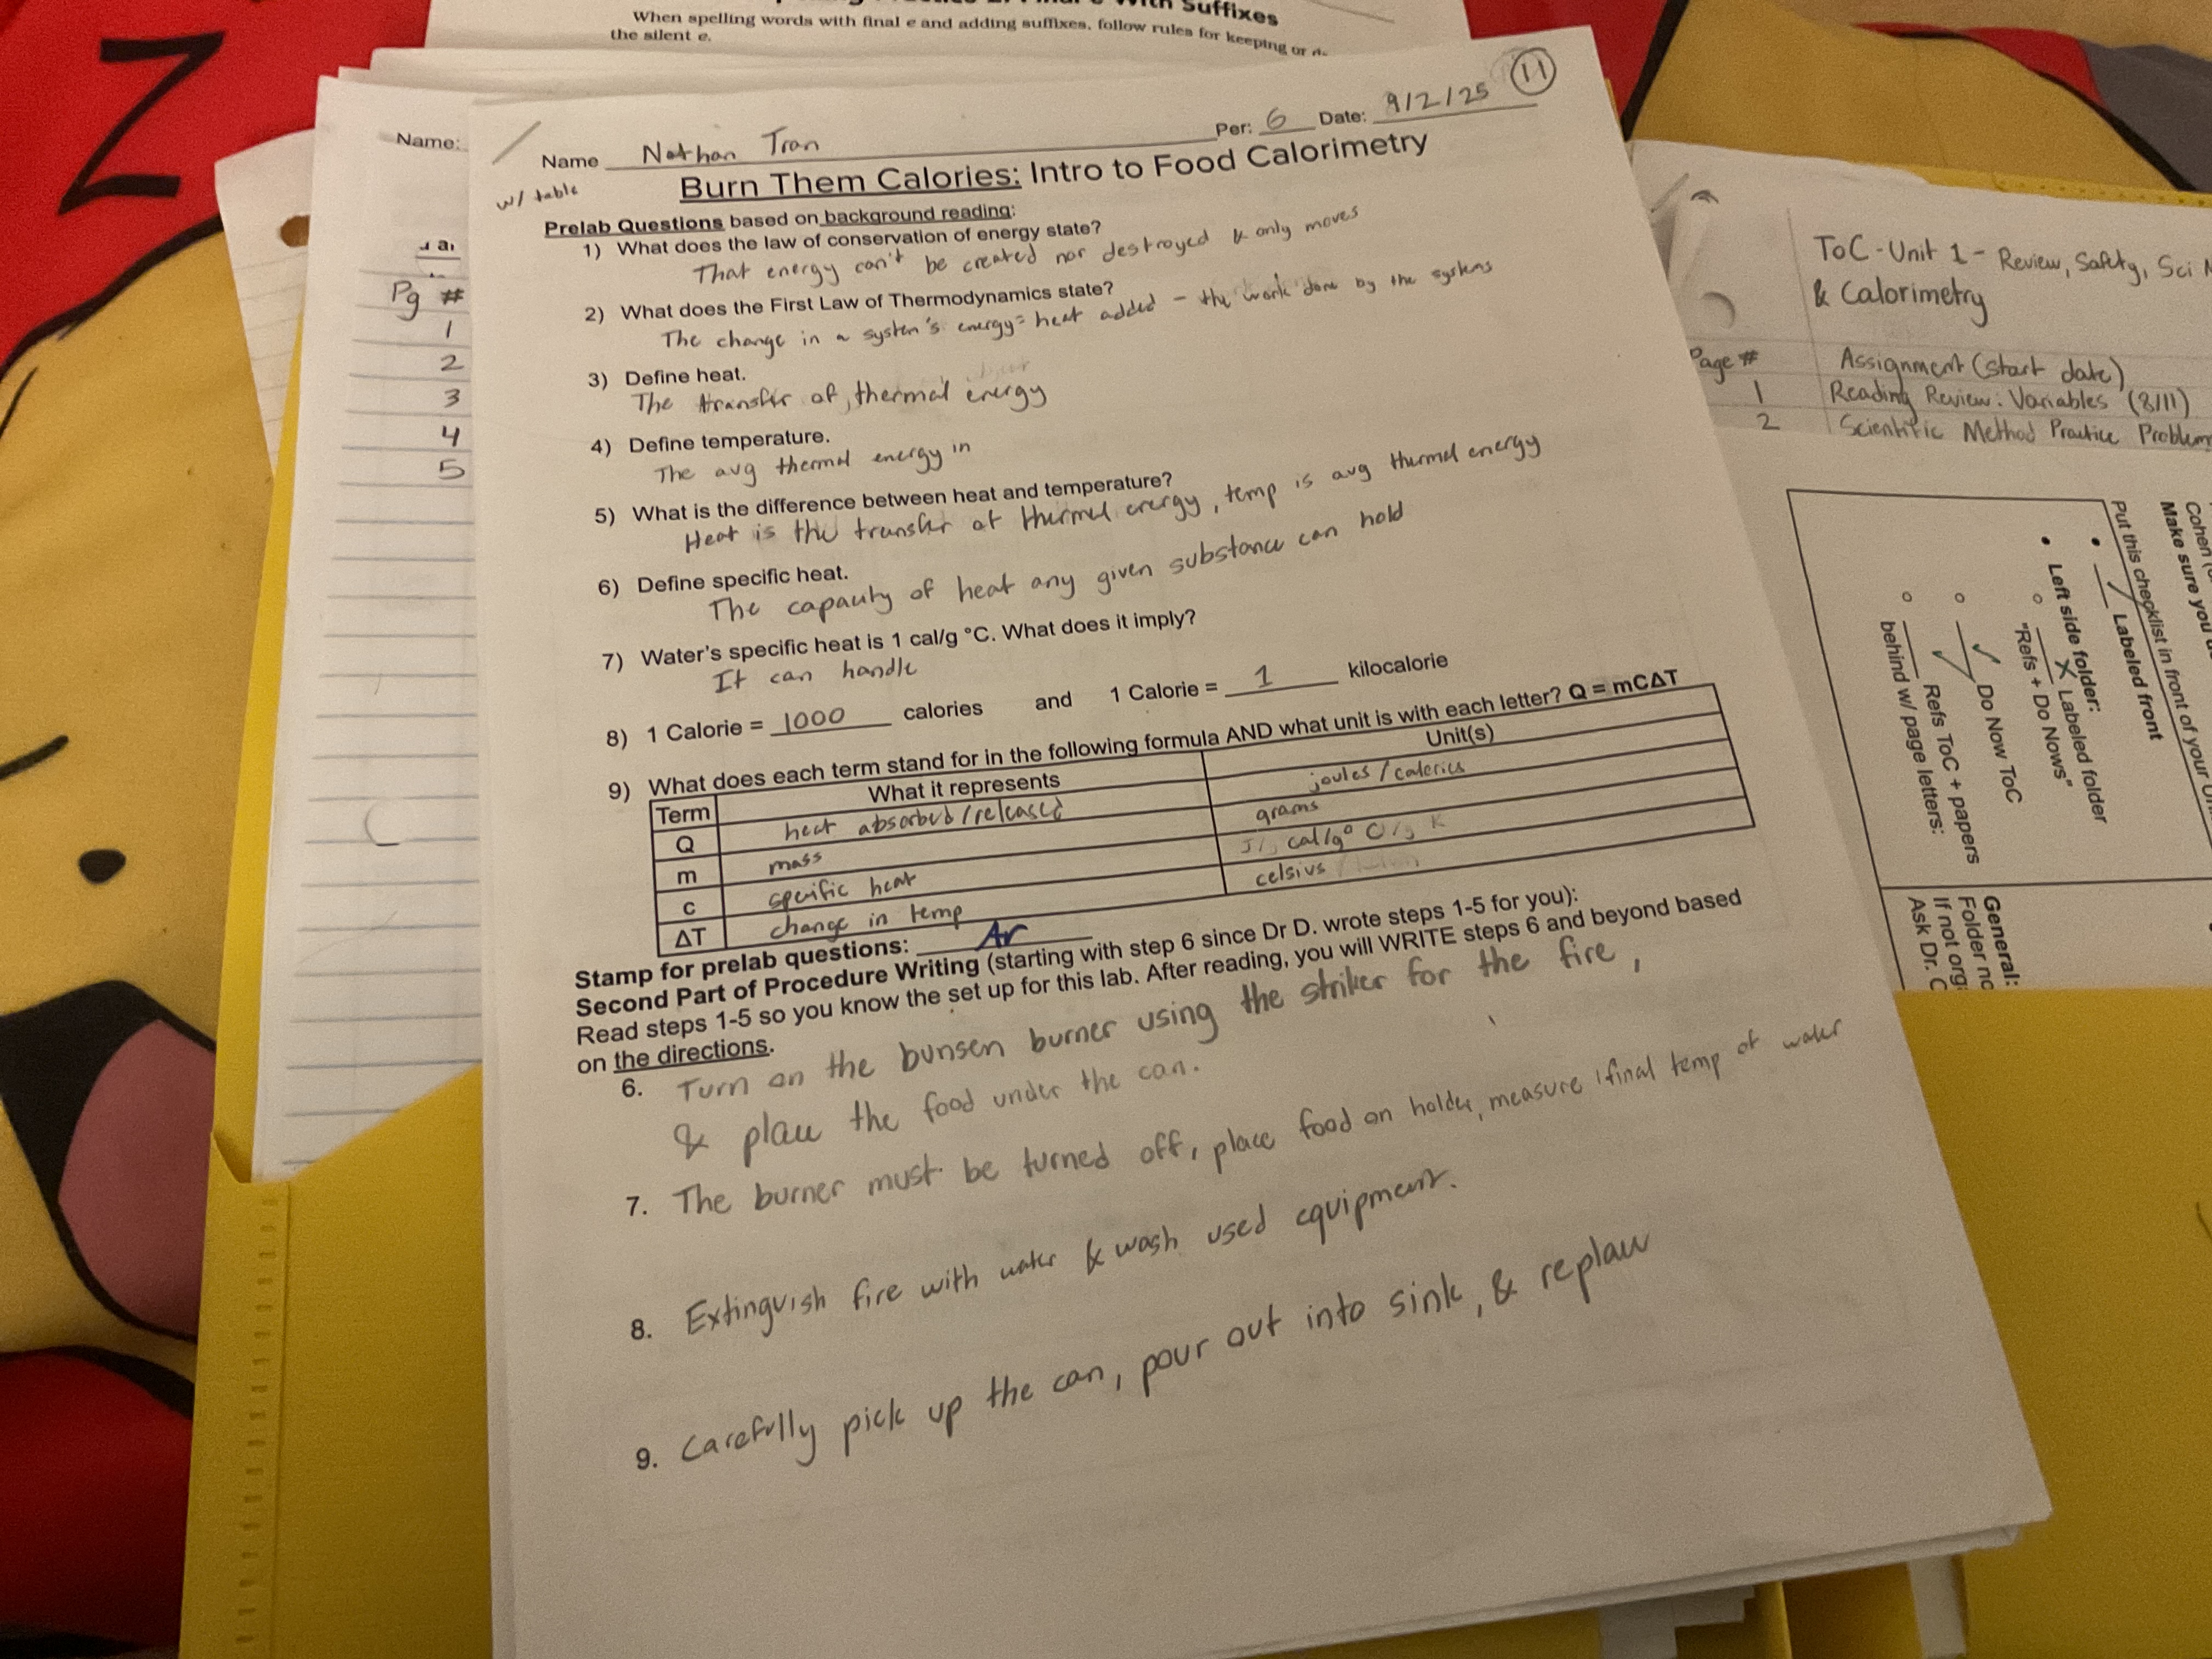 Z
Suffixes
When spelling words with final e and adding suffixes, follow rules for keeping or
the silent e.
Name:
Pg #
1
2
3
4
5
11
Name Nathan Tran Per: 6 Date: 9/2/25
w/ table
Burn Them Calories: Intro to Food Calorimetry
Prelab Questions based on background reading:
1) What does the law of conservation of energy state?
That energy can't be created nor destroyed & only moves
2) What does the First Law of Thermodynamics state?
The change in a system's energy = heat added - the work done by the systems
3) Define heat.
The transfer of thermal energy
4) Define temperature.
The avg thermal energy in
5) What is the difference between heat and temperature?
Heat is the transfer of thermal energy, temp is avg thermal energy
6) Define specific heat.
The capacity of heat any given substance can hold
7) Water's specific heat is 1 cal/g °C. What does it imply?
It can handle
8) 1 Calorie = 1000 calories and 1 Calorie = 1 kilocalorie
9) What does each term stand for in the following formula AND what unit is with each letter? Q = mCΔT
Term What it represents Unit(s)
Q heat absorbed/released joules/calories
m mass grams
c specific heat cal/g°
ΔT change in temp celsius
Stamp for prelab questions: Ar
Second Part of Procedure Writing (starting with step 6 since Dr D. wrote steps 1-5 for you):
Read steps 1-5 so you know the set up for this lab. After reading, you will WRITE steps 6 and beyond based
on the directions.
6. Turn on the bunsen burner using the striker for the fire,
& place the food under the can.
7. The burner must be turned off, place food on holder, measure final temp of water
8. Extinguish fire with water & wash used equipment.
9. Carefully pick up the can, pour out into sink, & replace
ToC - Unit 1 - Review, Safety, Sci
& Calorimetry
Page # Assignment (start date)
1 Reading Review: Variables (8/11)
2 Scientific Method Practice Problems
Cohen
Make sure you
Put this checklist in front of your
• Labeled front
• Left side folder:
Labeled folder
"Refs + Do Nows"
Do Now ToC
Refs ToC + papers
behind w/ page letters:
General:
Folder
If not org
Ask Dr. C